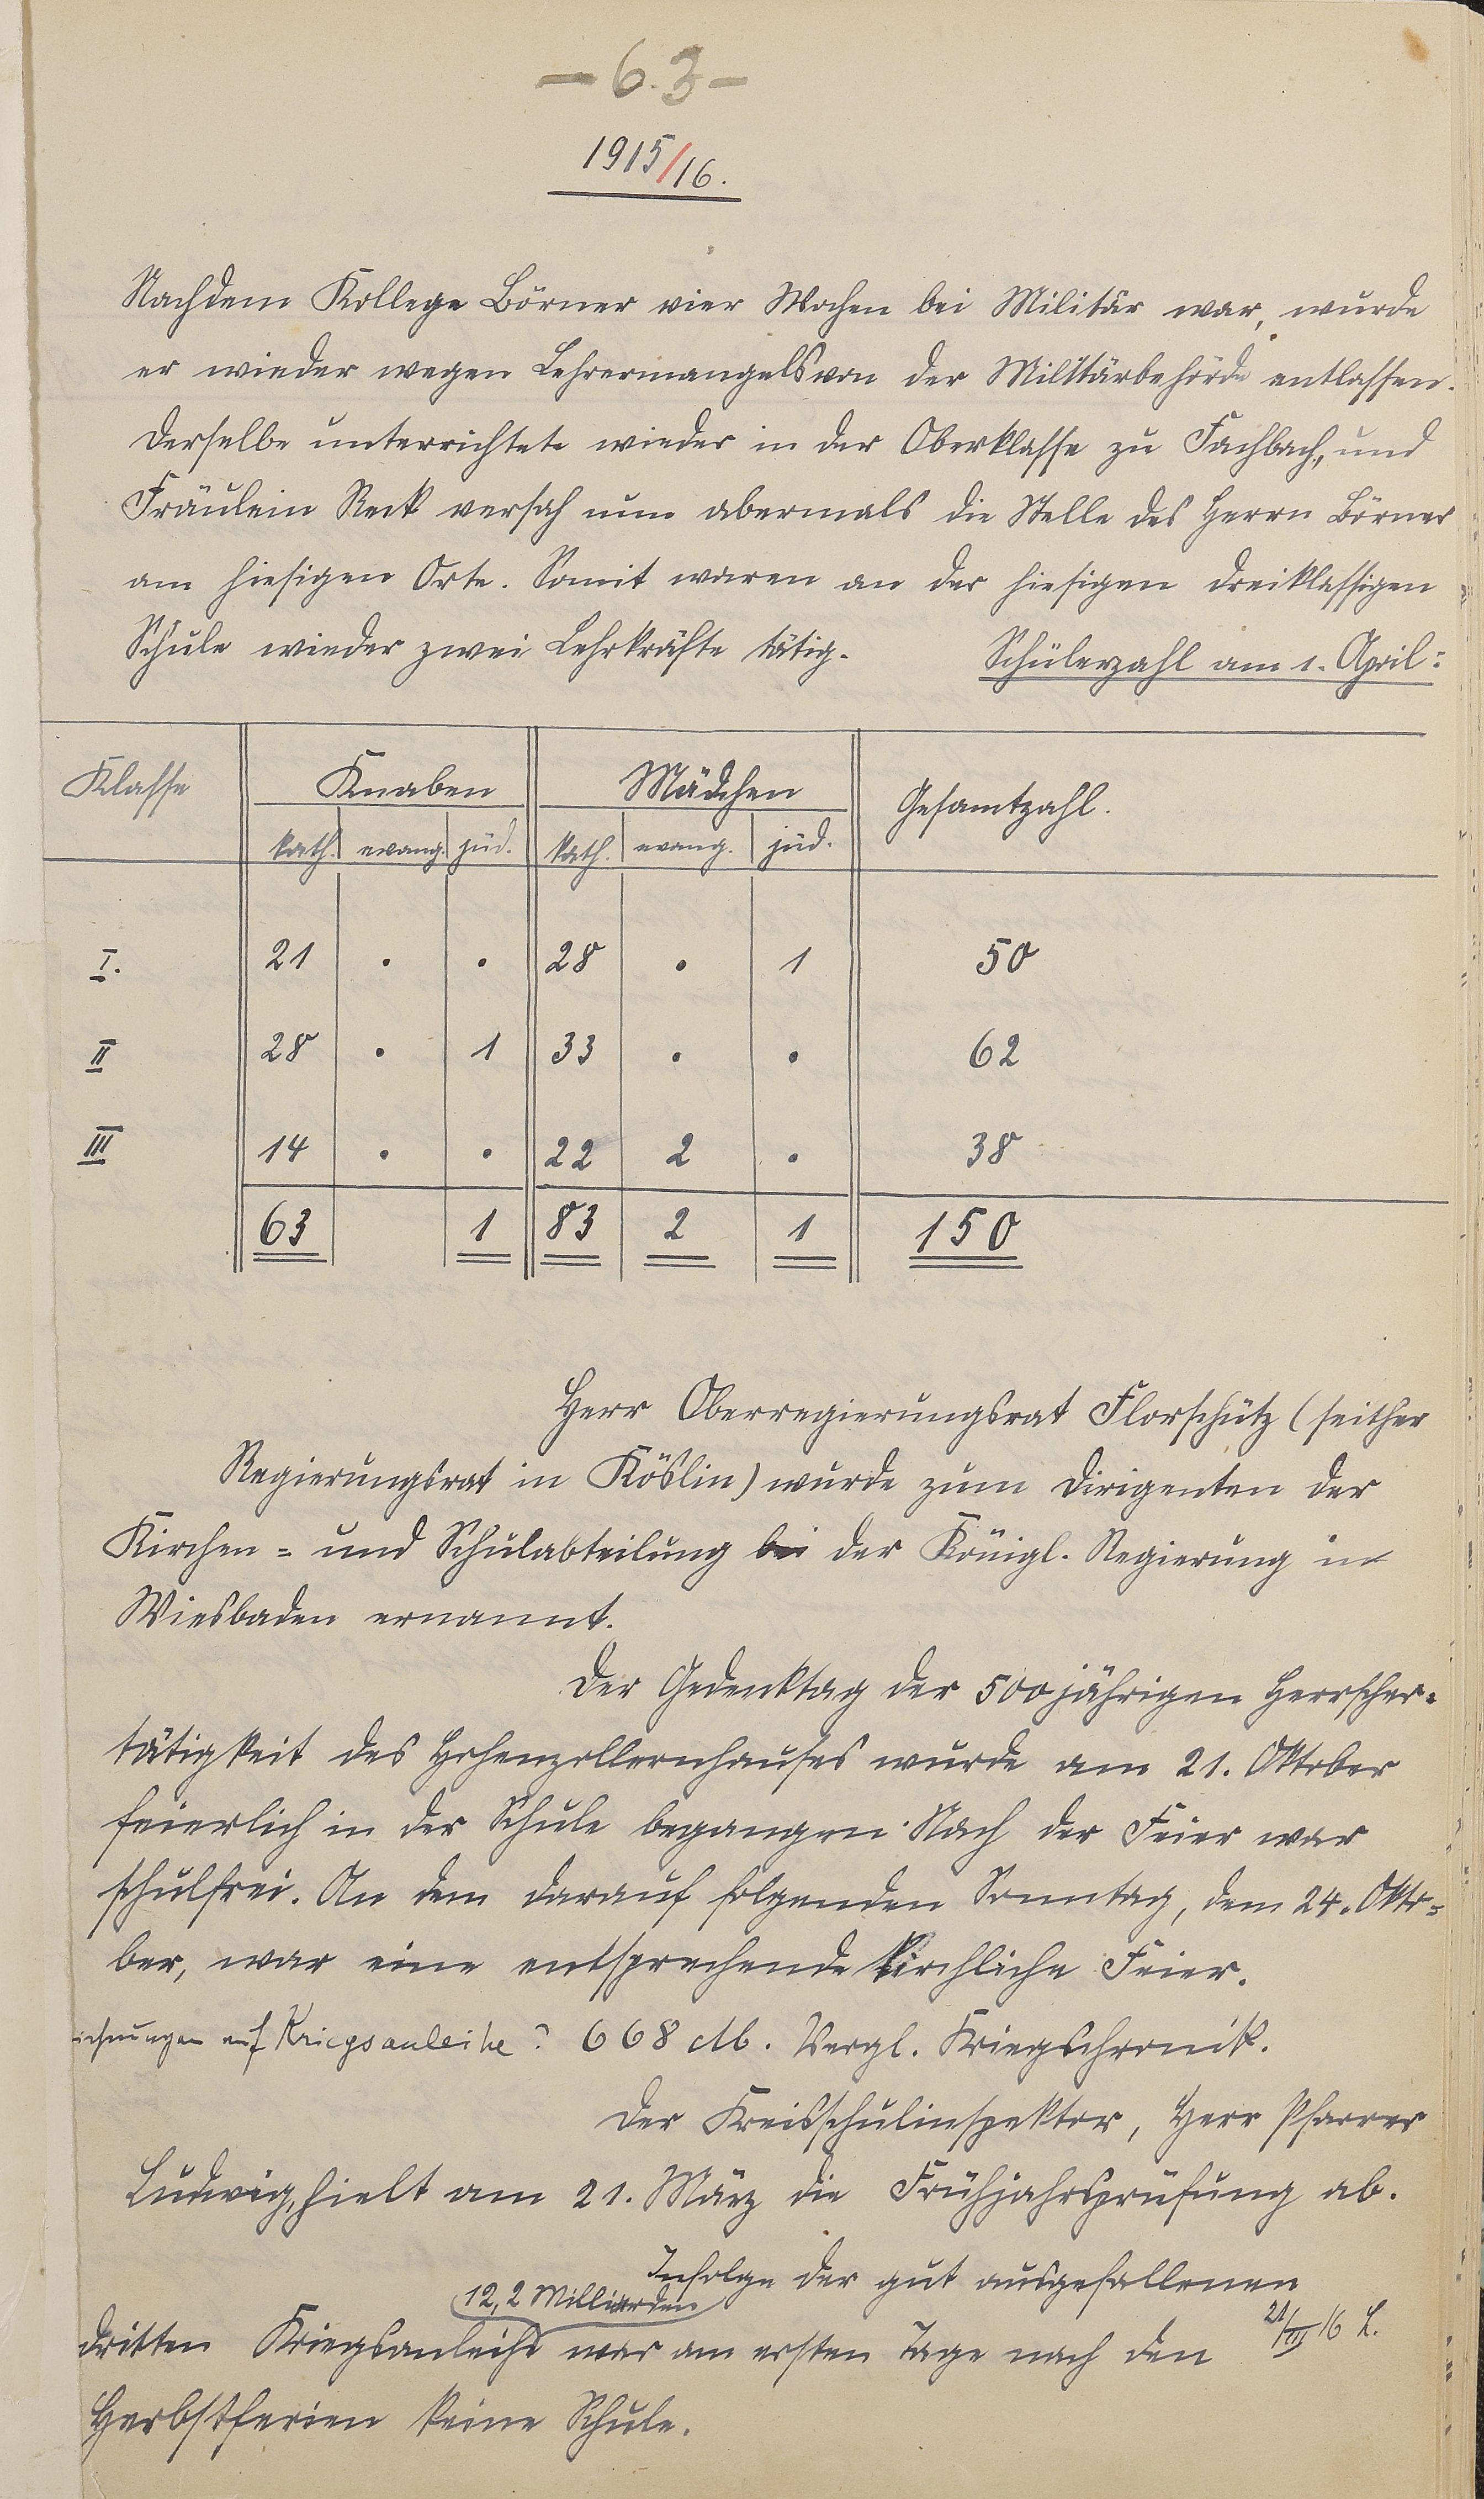 - 63 -
1915/16.
Nachdem Kollege Börner vier Wochen bei Militär war, wurde
er wieder wegen Lehrermangels von der Militärbehörde entlassen.
Derselbe unterrichtete wieder in der Oberklasse zu Fachbach, und
Fräulein Reck versah nun abermals die Stelle des Herrn Börner
am hiesigen Orte. Somit waren an der hiesigen dreiklassigen
Schule wieder zwei Lehrkräfte tätig. Schülerzahl am 1. April:
Klasse Knaben Mädchen Gesamtzahl.
kath. evang. jüd. kath. evang. jüd.
I. 21 . . 28 . 1 50
II 28 . 1 33 . . 62
III 14 . . 22 2 . 38
63 1 83 2 1 150
Herr Oberregierungsrat Florschütz (seither
Regierungsrat in Köslin) wurde zum Dirigenten der
Kirchen= und Schulabteilung bei der Königl. Regierung in
Wiesbaden ernannt.
Der Gedenktag der 500jährigen Herrscher=
tätigkeit des Hohenzollernhauses wurde am 21. Oktober
feierlich in der Schule begangen. Nach der Feier war
schulfrei. An dem darauf folgenden Sonntag, dem 24. Okto=
ber, war eine entsprechende kirchliche Feier.
ichnungen auf Kriegsanleihe? 668 M. Vergl. Kriegschronik.
Der Kreisschulinspektor, Herr Pfarrer
Ludwig, hielt am 21. März die Frühjahrsprüfung ab.
Infolge der gut ausgefallenen
12,2 Milliarden
dritten Kriegsanleihe war am ersten Tage nach den 21/III 16 L.
Herbstferien keine Schule.